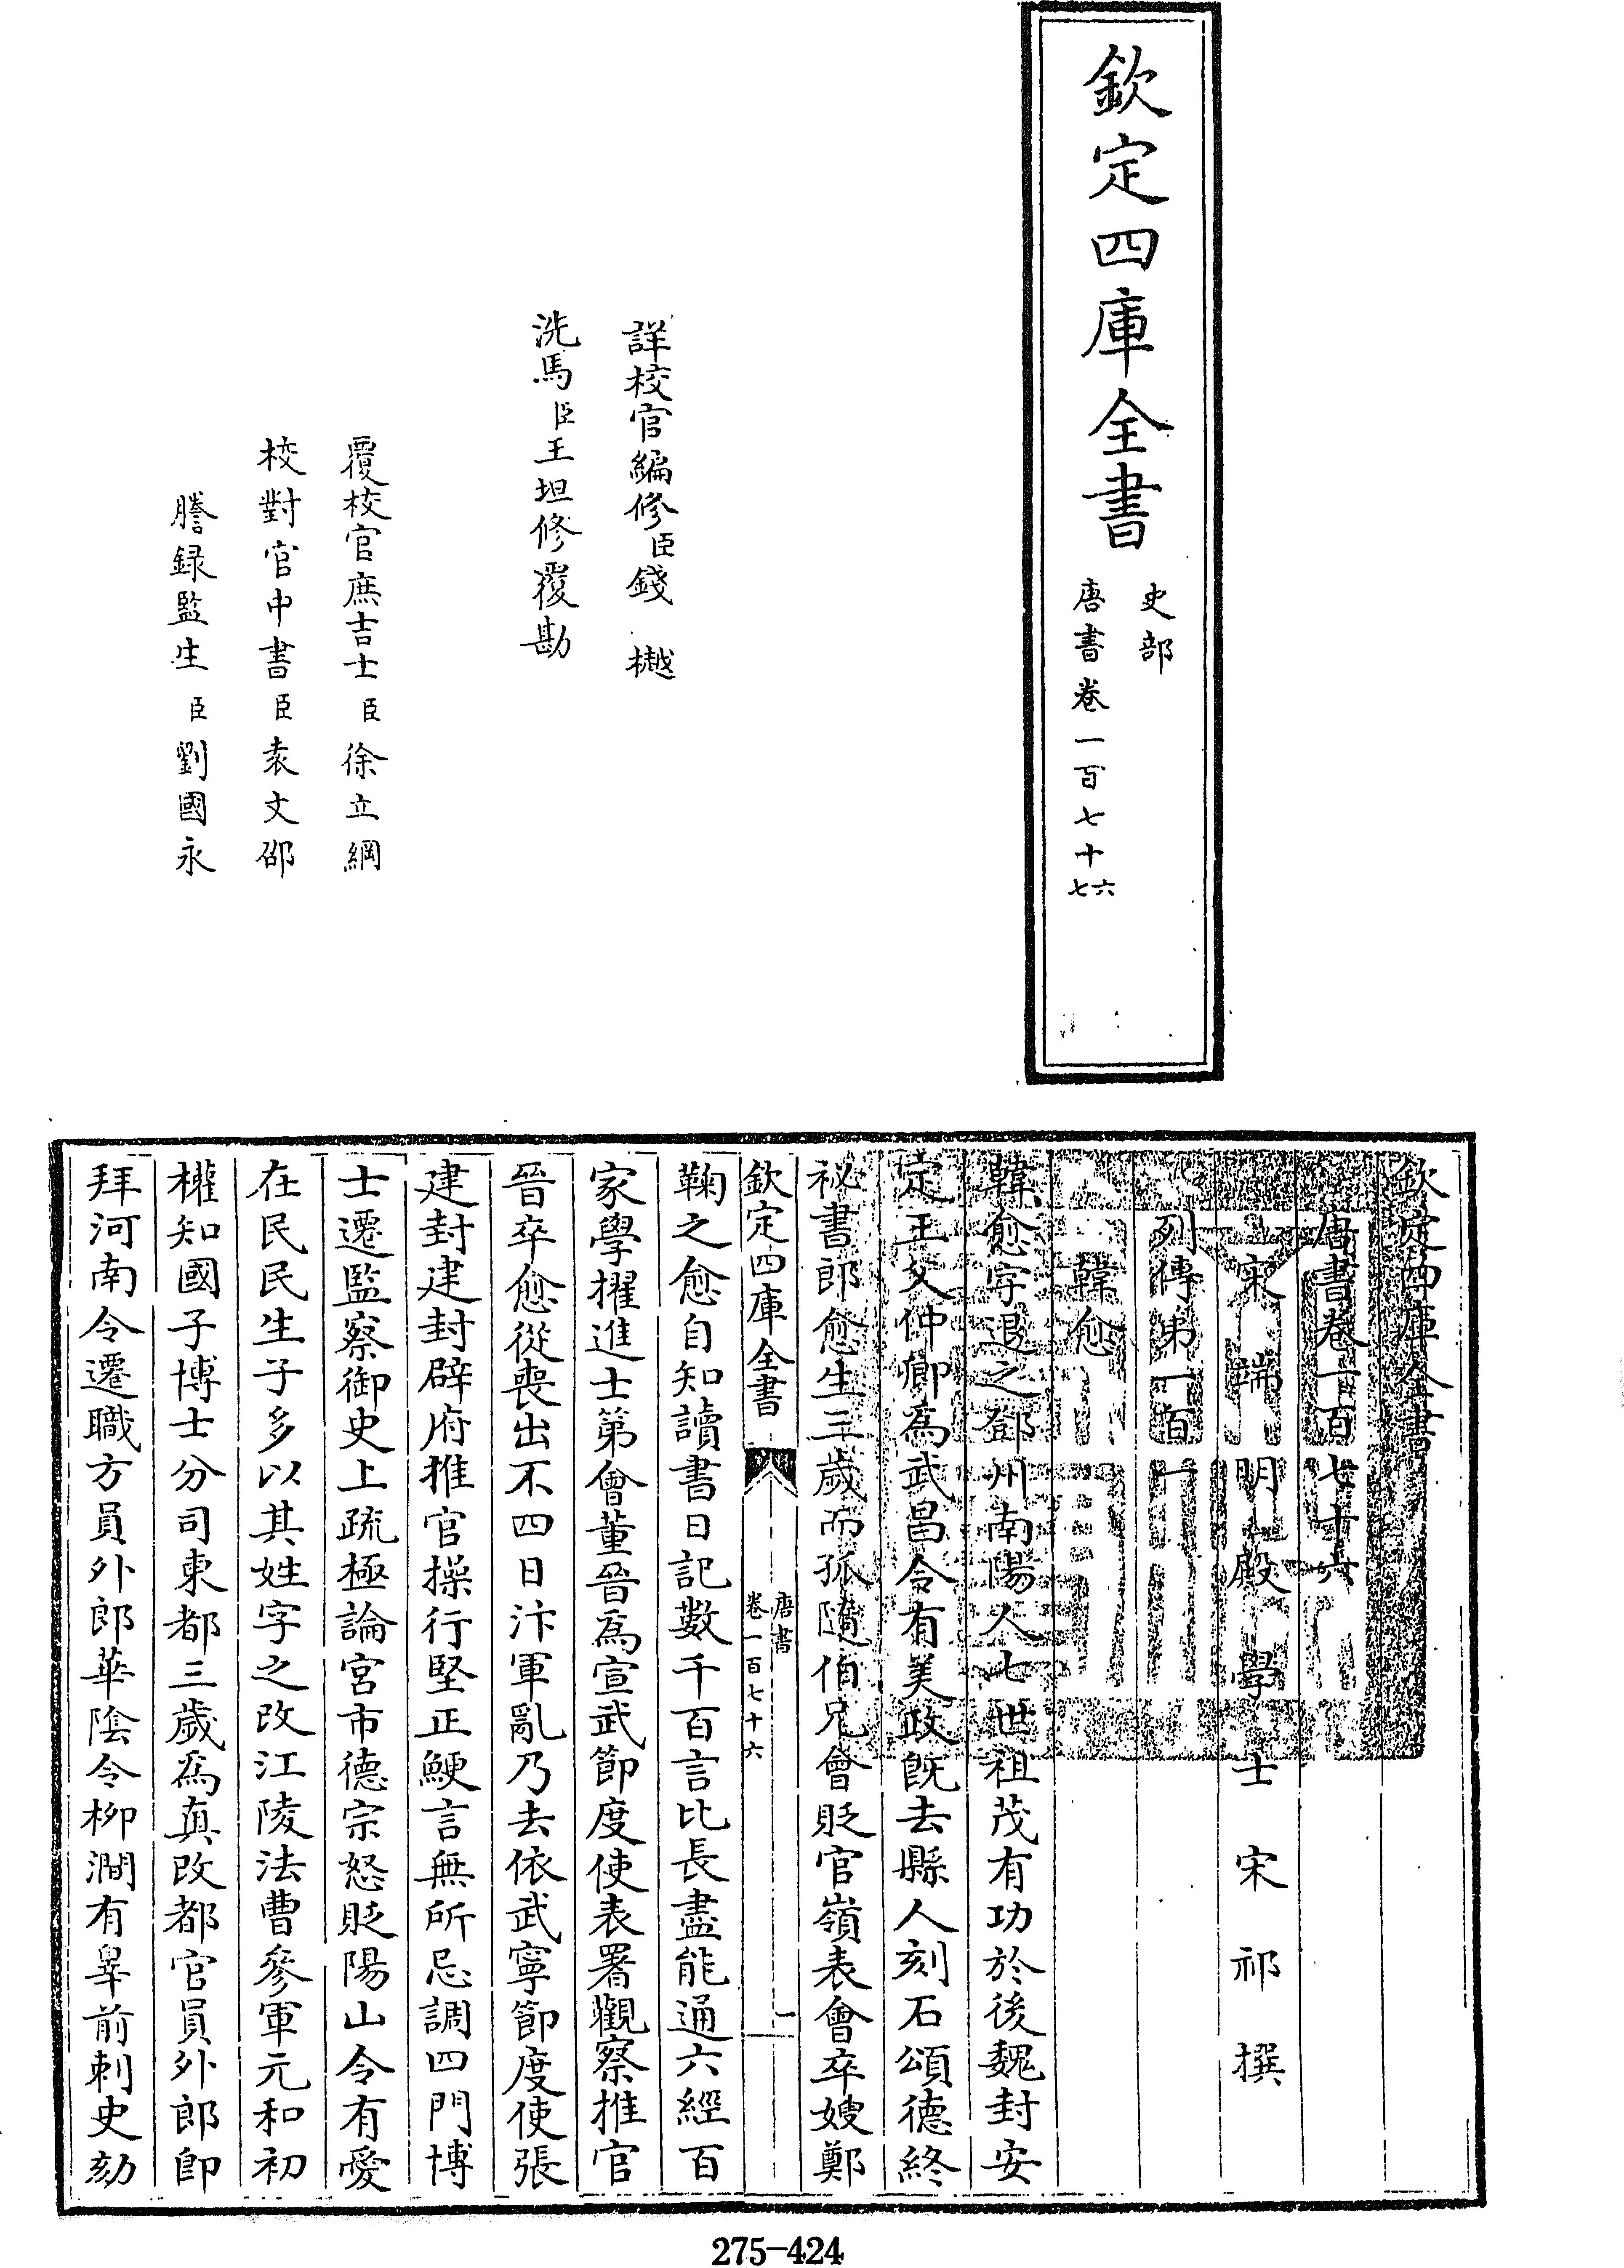 欽定四庫全書
史部
唐書卷一百七十六七
詳校官編修臣錢樾
洗馬臣王坦修覆勘
覆校官庶吉士臣徐立綱
校對官中書臣袁文邵
謄録監生臣劉國永
欽定四庫全書
唐書卷一百七十六
宋端明殿學士宋祁撰
列傳第一百一
韓愈
韓愈字退之鄧州南陽人七世祖茂有功於後魏封安
定王父仲卿為武昌令有美政既去縣人刻石頌德終
祕書郎愈生三歲而孤隨伯兄會貶官嶺表會卒嫂鄭
欽定四庫全書
唐書
卷一百七十六
一
鞠之愈自知讀書日記數千百言比長盡能通六經百
家學擢進士第會董晉為宣武節度使表署觀察推官
晉卒愈從喪出不四日汴軍亂乃去依武寧節度使張
建封建封辟府推官操行堅正鯁言無所忌調四門博
士遷監察御史上疏極論宮市德宗怒貶陽山令有愛
在民民生子多以其姓字之改江陵法曹參軍元和初
權知國子博士分司東都三歲為真改都官員外郎即
拜河南令遷職方員外郎華陰令柳澗有辠前刺史劾
275-424